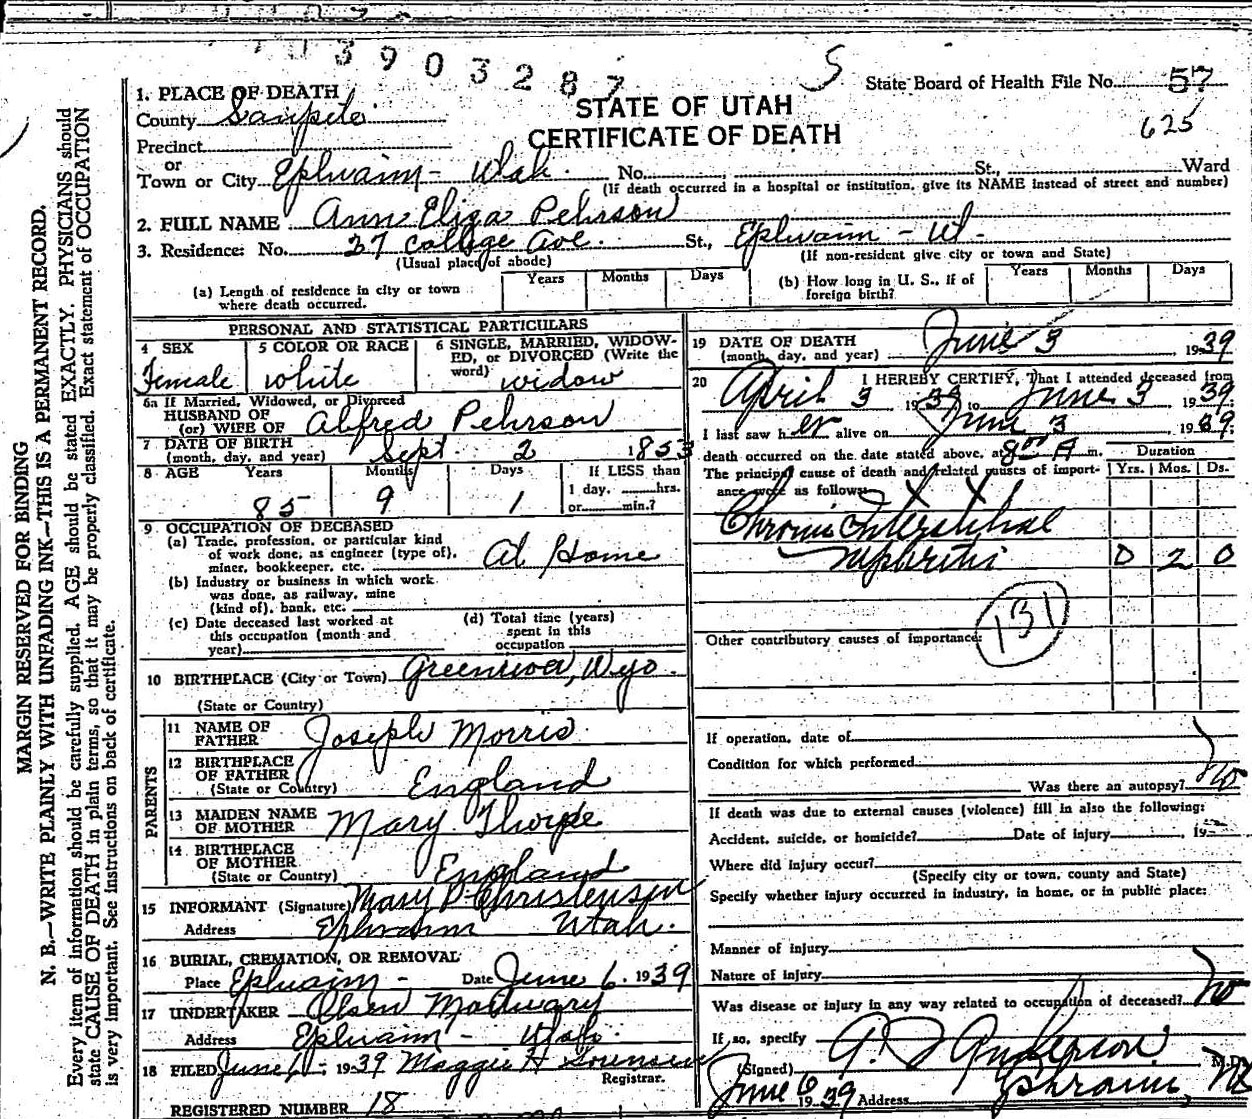 03903287
S
State Board of Health File No. 57
625
STATE OF UTAH
CERTIFICATE OF DEATH
1. PLACE OF DEATH
County Sanpete
Precinct
or
Town or City Ephraim - Utah. No. St., Ward
(If death occurred in a hospital or institution, give its NAME instead of street and number)
2. FULL NAME Ann Eliza Pehrson
3. Residence: No. 27 College Ave. St., Ephraim - Ut.
(Usual place of abode) (If non-resident give city or town and State)
(a) Length of residence in city or town where death occurred. Years Months Days
(b) How long in U. S., if of foreign birth? Years Months Days
PERSONAL AND STATISTICAL PARTICULARS
4 SEX Female
5 COLOR OR RACE white
6 SINGLE, MARRIED, WIDOWED, or DIVORCED (Write the word) widow
6a If Married, Widowed, or Divorced
HUSBAND OF
(or) WIFE OF Alfred Pehrson
7 DATE OF BIRTH
(month, day, and year) Sept. 2 1853
8 AGE Years Months Days If LESS than
1 day, hrs.
85 9 1 or min.?
9 OCCUPATION OF DECEASED
(a) Trade, profession, or particular kind
of work done, as engineer (type of),
miner, bookkeeper, etc. At Home
(b) Industry or business in which work
was done, as railway, mine
(kind of), bank, etc.
(c) Date deceased last worked at
this occupation (month and
year)
(d) Total time (years)
spent in this
occupation
10 BIRTHPLACE (City or Town) Wyo.
(State or Country)
PARENTS
11 NAME OF
FATHER Joseph Morris
12 BIRTHPLACE
OF FATHER
(State or Country) England
13 MAIDEN NAME
OF MOTHER Mary Thorpe
14 BIRTHPLACE
OF MOTHER
(State or Country) England
15 INFORMANT (Signature) Mary P Christensen
Address Ephraim Utah.
16 BURIAL, CREMATION, OR REMOVAL
Place Ephraim - Date June 6. 1939
17 UNDERTAKER Olsen Mortuary
Address Ephraim - Utah.
18 FILED June 6 - 1939 Maggie H Sorensen
Registrar.
REGISTERED NUMBER 18
19 DATE OF DEATH
(month, day, and year) June 3 1939
20 I HEREBY CERTIFY, That I attended deceased from
April 3 1939 to June 3 1939.
I last saw her alive on June 3 1939.
death occurred on the date stated above, at 8 00 A m.
The principal cause of death and related causes of importance were as follows:
Duration
Yrs. Mos. Ds.
X X
Chronic Interstitial
Nephritis 0 2 0
131
Other contributory causes of importance:
If operation, date of
Condition for which performed
Was there an autopsy? No
If death was due to external causes (violence) fill in also the following:
Accident, suicide, or homicide? Date of injury , 19
Where did injury occur?
(Specify city or town, county and State)
Specify whether injury occurred in industry, in home, or in public place:
Manner of injury
Nature of injury
Was disease or injury in any way related to occupation of deceased? No
If so, specify
(Signed) Anderson M.D.
June 6 1939 Address Ephraim,
MARGIN RESERVED FOR BINDING
N. B.—WRITE PLAINLY WITH UNFADING INK—THIS IS A PERMANENT RECORD.
Every item of information should be carefully supplied. AGE should be stated EXACTLY. PHYSICIANS should
state CAUSE OF DEATH in plain terms, so that it may be properly classified. Exact statement of OCCUPATION
is very important. See instructions on back of certificate.